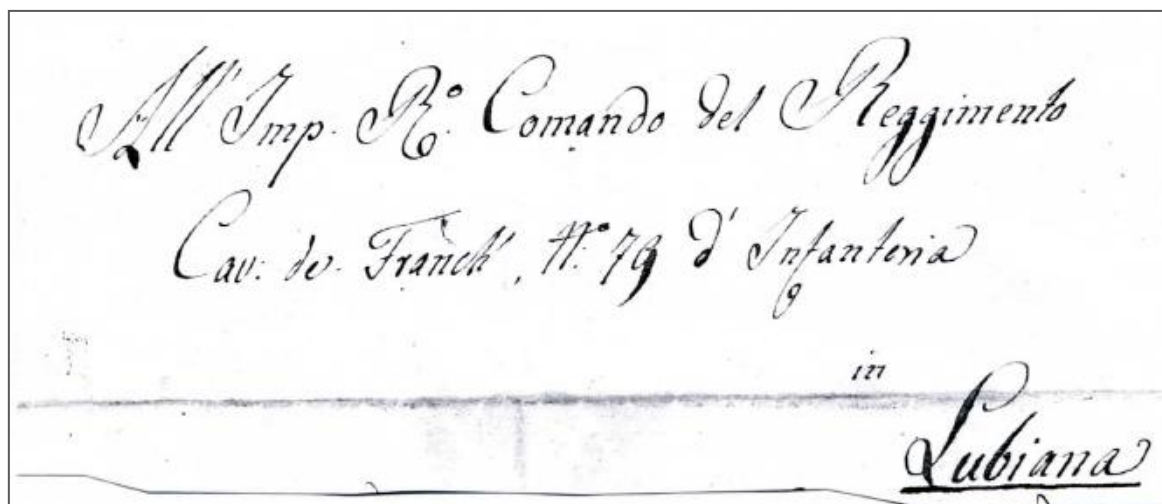 All' Imp. R.º Comando del Reggimento
Cav: de Franck', N.º 79 d' Infanteria
in
Lubiana